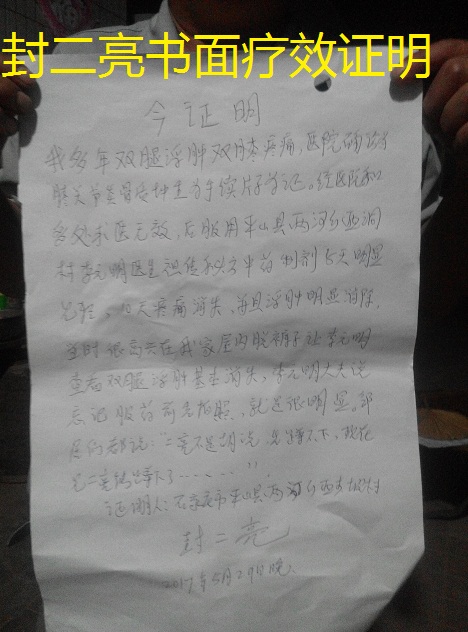 封二亮书面疗效证明
今证明
我多年双腿浮肿双膝疼痛，医院确诊为
膝关节 骨质增生 片子为证。经医院和
多处求医无效，后服用平山县两河乡西洞
村李元明医生祖传秘方中药制剂5天明显
见轻，10天疼痛消失，并且浮肿明显消除，
当时很高兴在我家屋内脱裤子让李元明
查看双腿浮肿基本消失，李元明大夫说
忘记服药前先拍照，就是很明显。邻
居们都说：二亮不是胡说，蹲不下，现在
见二亮能蹲下了……”。
证明人：石家庄市平山县两河乡西 村
封二亮
2017年5月29日晚上